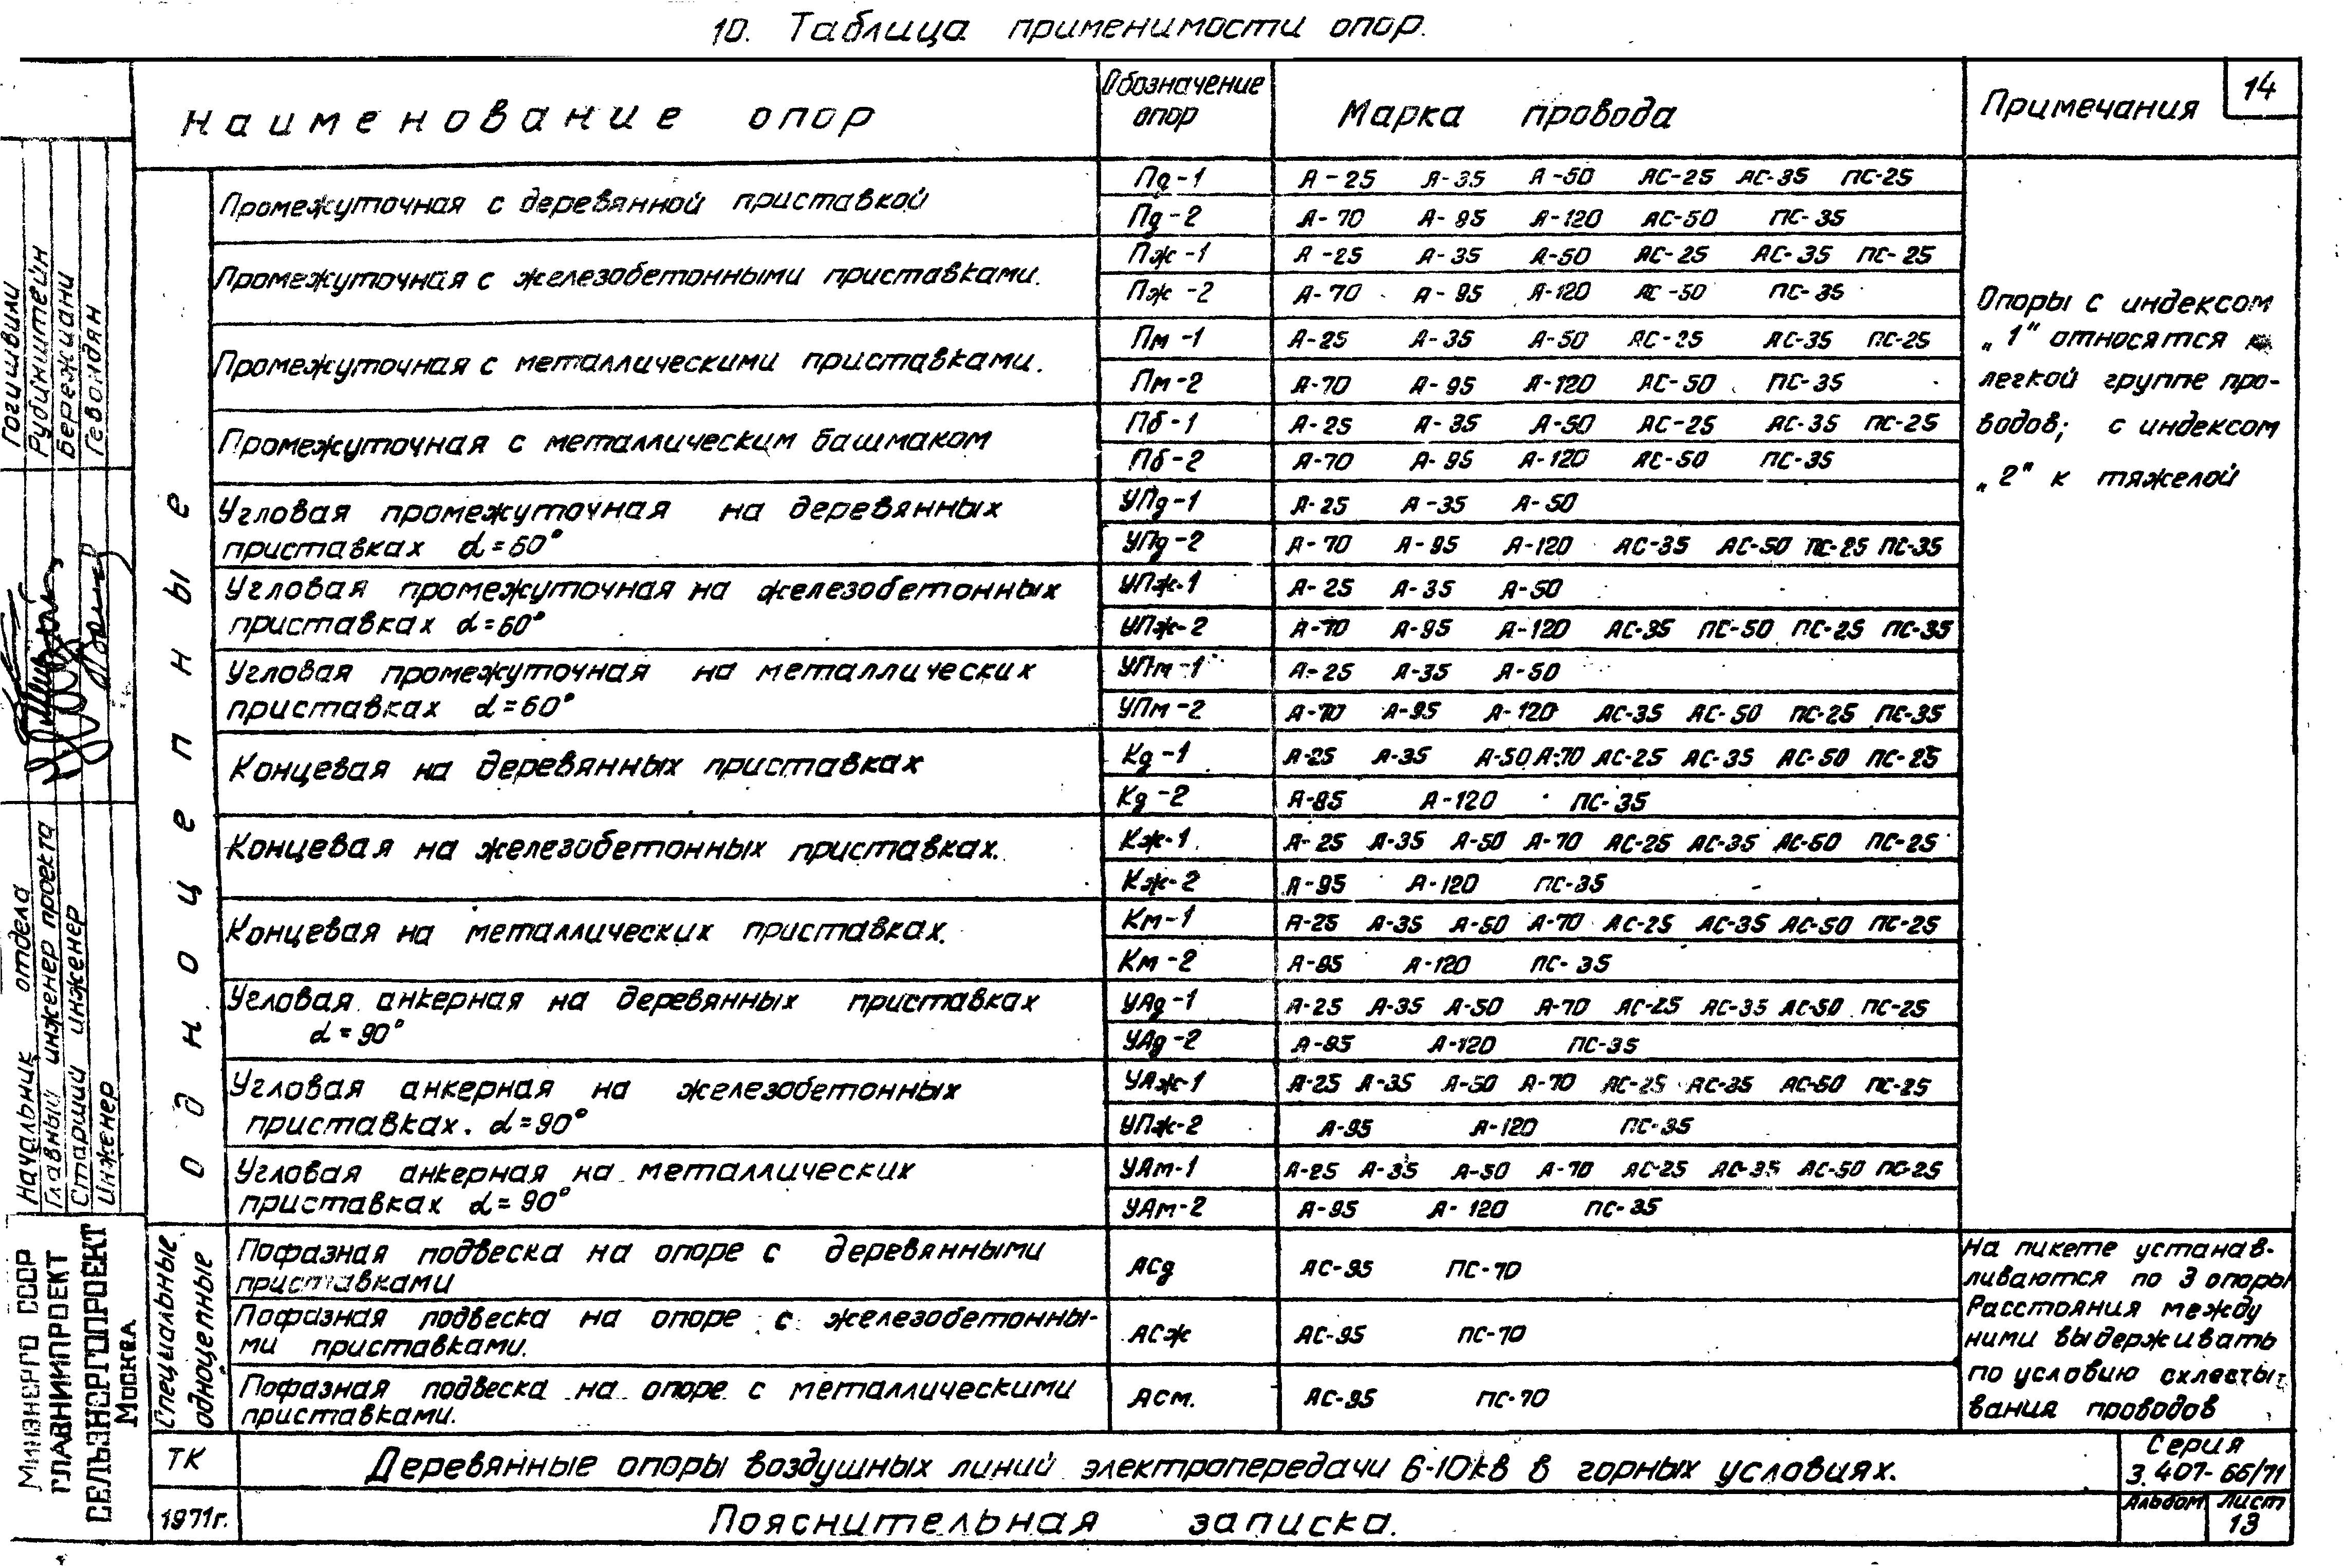 10. Таблица применимости опор.
14
Наименование опор
Обозначение опор
Марка провода
Примечания
Одноцепные
Промежуточная с деревянной приставкой
Пд-1 А-25 А-35 А-50 АС-25 АС-35 ПС-25
Пд-2 А-70 А-95 А-120 АС-50 ПС-35
Промежуточная с железобетонными приставками.
Пж-1 А-25 А-35 А-50 АС-25 АС-35 ПС-25
Пж-2 А-70 А-95 А-120 АС-50 ПС-35
Промежуточная с металлическими приставками.
Пм-1 А-25 А-35 А-50 АС-25 АС-35 ПС-25
Пм-2 А-70 А-95 А-120 АС-50 ПС-35
Промежуточная с металлическим башмаком
Пб-1 А-25 А-35 А-50 АС-25 АС-35 ПС-25
Пб-2 А-70 А-95 А-120 АС-50 ПС-35
Угловая промежуточная на деревянных
приставках α=60°
УПд-1 А-25 А-35 А-50
УПд-2 А-70 А-95 А-120 АС-35 АС-50 ПС-25 ПС-35
Угловая промежуточная на железобетонных
приставках α=60°
УПж-1 А-25 А-35 А-50
УПж-2 А-70 А-95 А-120 АС-35 ПС-50 ПС-25 ПС-35
Угловая промежуточная на металлических
приставках α=60°
УПм-1 А-25 А-35 А-50
УПм-2 А-70 А-95 А-120 АС-35 АС-50 ПС-25 ПС-35
Концевая на деревянных приставках
Кд-1 А-25 А-35 А-50 А-70 АС-25 АС-35 АС-50 ПС-25
Кд-2 А-95 А-120 ПС-35
Концевая на железобетонных приставках.
Кж-1 А-25 А-35 А-50 А-70 АС-25 АС-35 АС-50 ПС-25
Кж-2 А-95 А-120 ПС-35
Концевая на металлических приставках.
Км-1 А-25 А-35 А-50 А-70 АС-25 АС-35 АС-50 ПС-25
Км-2 А-95 А-120 ПС-35
Угловая анкерная на деревянных приставках
α=90°
УАд-1 А-25 А-35 А-50 А-70 АС-25 АС-35 АС-50 ПС-25
УАд-2 А-95 А-120 ПС-35
Угловая анкерная на железобетонных
приставках. α=90°
УАж-1 А-25 А-35 А-50 А-70 АС-25 АС-35 АС-50 ПС-25
УПж-2 А-95 А-120 ПС-35
Угловая анкерная на металлических
приставках α=90°
УАм-1 А-25 А-35 А-50 А-70 АС-25 АС-35 АС-50 ПС-25
УАм-2 А-95 А-120 ПС-35
Опоры с индексом
„1" относятся к
легкой группе про-
водов; с индексом
„2" к тяжелой
Специальные
одноцепные
Пофазная подвеска на опоре с деревянными
приставками
АСд АС-95 ПС-70
Пофазная подвеска на опоре с железобетонны-
ми приставками.
АСж АС-95 ПС-70
Пофазная подвеска на опоре с металлическими
приставками.
АСм. АС-95 ПС-70
На пикете устанав-
ливаются по 3 опоры
Расстояния между
ними выдерживать
по условию схлесты-
вания проводов
ТК
Деревянные опоры воздушных линий электропередачи 6-10кв в горных условиях.
Серия
3.407-66/71
1971г.
Пояснительная записка.
Альбом
Лист
13
Гогишвили
Рубинштейн
Бережиани
Гевондян
Начальник отдела
Главный инженер проекта
Старший инженер
Инженер
Минэнерго СССР
ГЛАВНИИПРОЕКТ
СЕЛЬЭНЕРГОПРОЕКТ
Москва